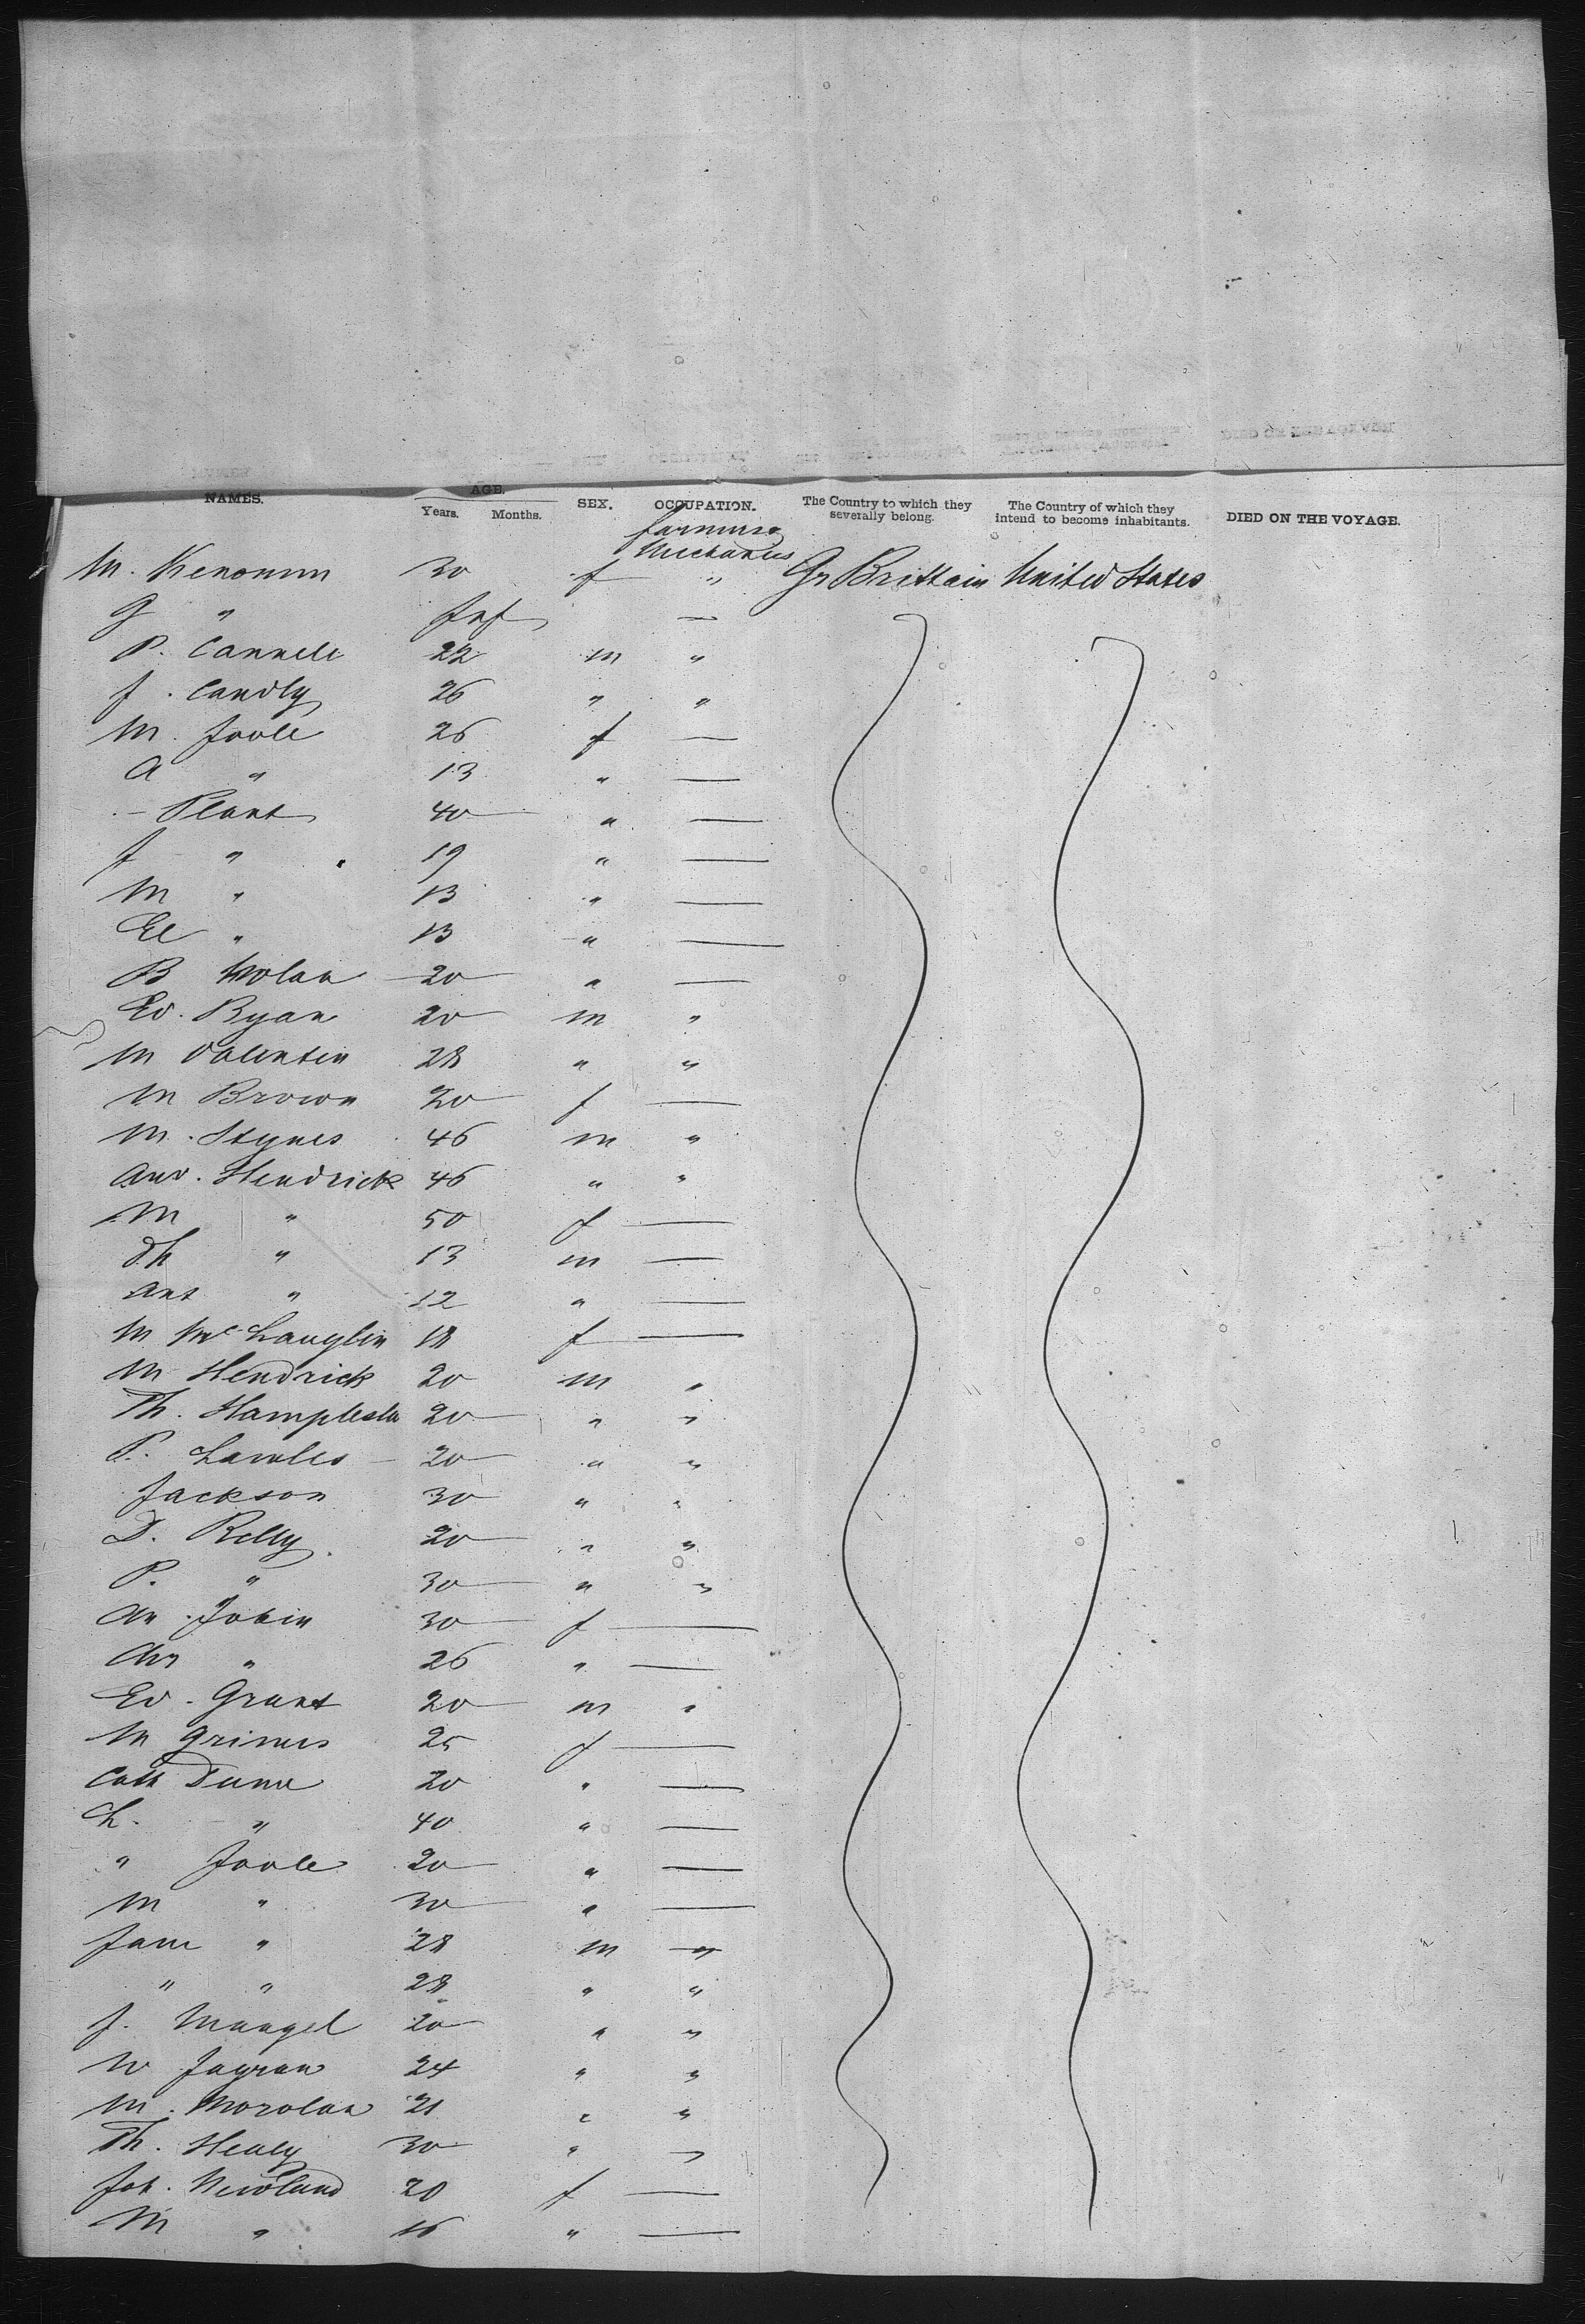 NAMES. AGE. SEX. OCCUPATION. The Country to which they severally belong. The Country of which they intend to become inhabitants. DIED ON THE VOYAGE.
Years. Months.
farmers
Mechanics
M. 30 f " Gr Brittain United States
G " Inf —
P. 22 m "
J. Candly 26 " "
M. Toole 26 f —
A " 13 " —
- Plant 40 " —
J " 19 " —
M " 13 " —
El " 13 " —
B Nolan 20 " —
Ed. Ryan 20 m "
M Valentin 28 " "
M Brown 20 f —
M. Stynes 46 m "
And. Hendrick 46 " "
M " 50 f —
Th " 13 m —
Ant " 12 " —
M McLauglin 18 f —
M Hendrick 20 m "
Th. 20 " "
P. Lawles 20 " "
Jackson 30 " "
D. Relly 20 " "
P. " 30 " "
An. Tobin 30 f —
" 26 " —
Ed. Grant 20 m "
M Grimes 25 f —
Cath Dunn 20 " —
Ch. " 40 " —
" Toole 20 " —
M " 30 " —
Jam " 28 m "
" " 28 " "
J. Mangel 20 " "
W 24 " "
M. Morolan 21 " "
Th. Healy 30 " "
Joh. Newland 20 f —
M " 16 " —